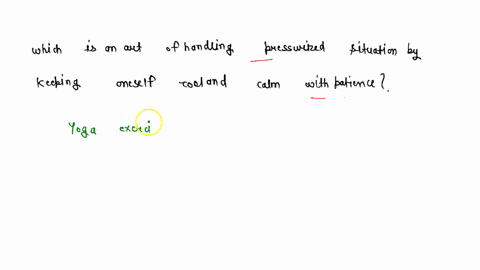 which is an art of handling pressurized situation by
keeping oneself cool and calm with patience?
Yoga exerci